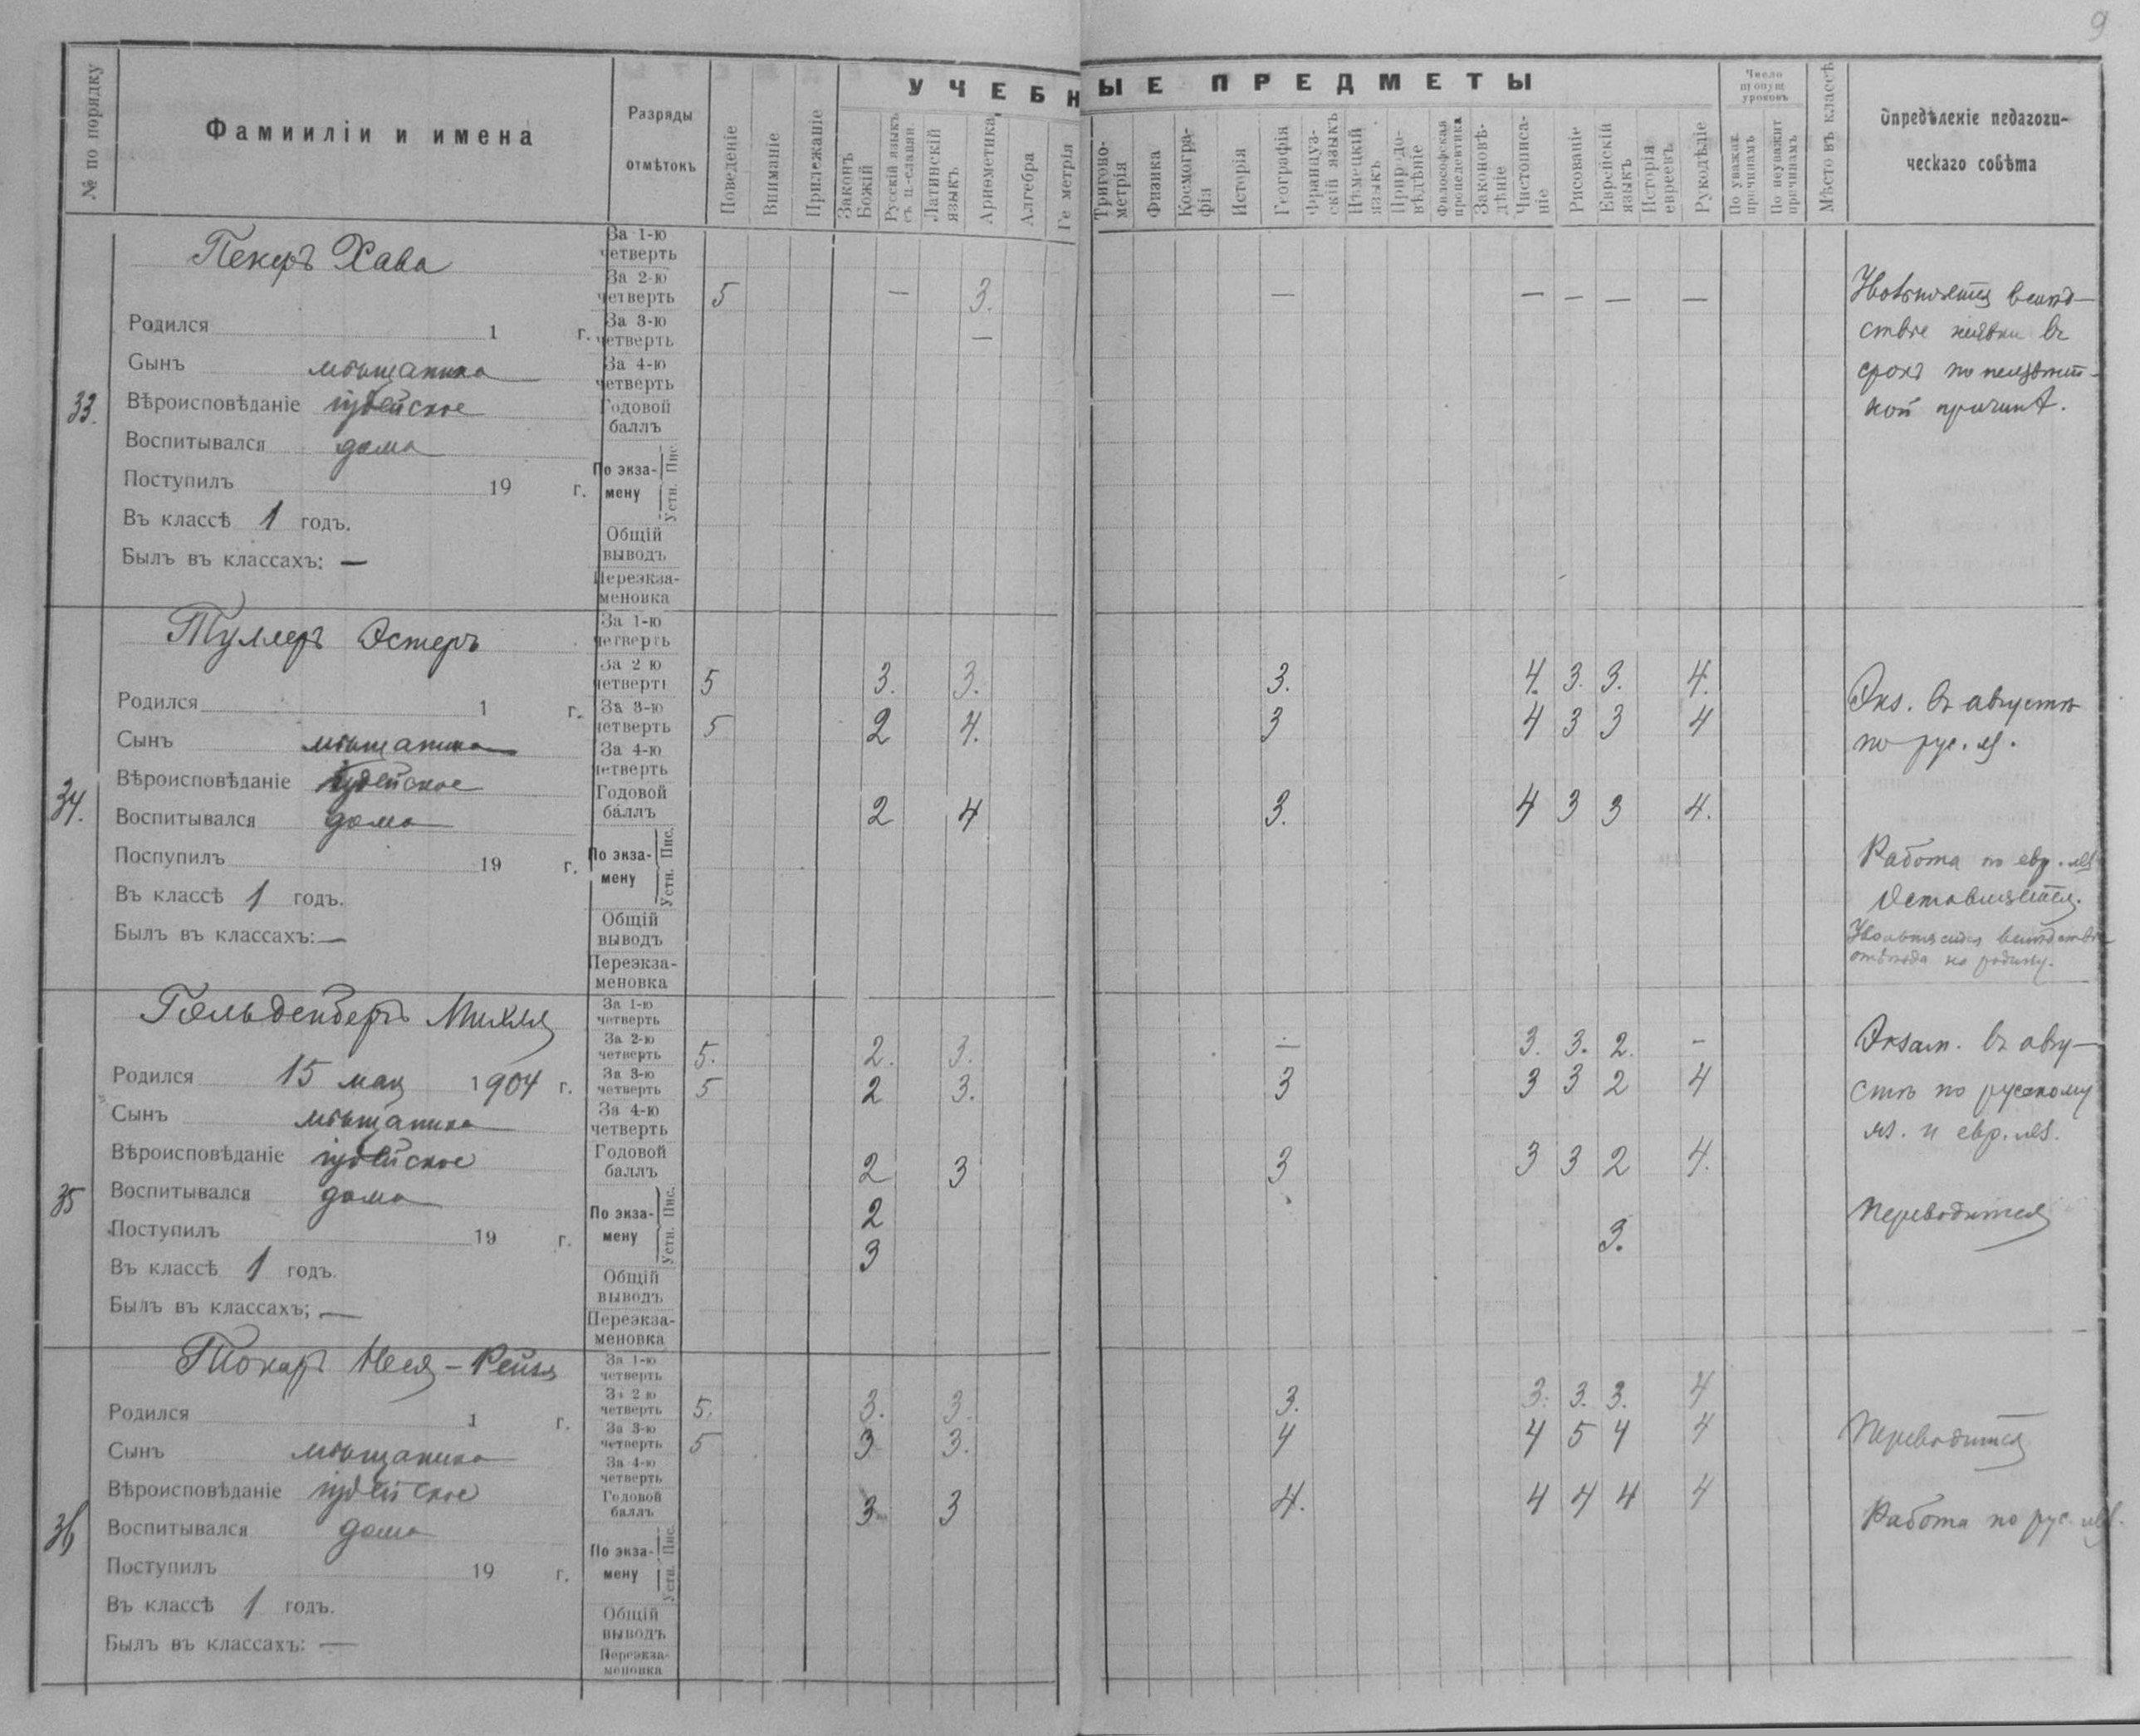 9
УЧЕБНЫЕ ПРЕДМЕТЫ
№ по порядку
Фамииліи и имена
Разряды
отмѣтокъ
Поведеніе
Вниманіе
Прилежаніе
Законъ Божій
Русскій языкъ съ ц.-славян.
Латинскій языкъ
Ариѳметика
Алгебра
Ге метрія
Тригоно-метрія
Физика
Космогра-фія
Исторія
Географія
Француз-скій языкъ
Нѣмецкій языкъ
Природо-вѣдѣніе
Философская пропедевтика
Законовѣ-дѣніе
Чистописа-ніе
Рисованіе
Еврейскій языкъ
Исторія евреевъ
Рукодѣліе
Число пропущ уроковъ
По уважит причинамъ
По неуважит причинамъ
Мѣсто въ классѣ
Опредѣленіе педагоги-
ческаго совѣта
33.
Пекеръ Хава
Родился 1 г.
Сынъ мѣщанина
Вѣроисповѣданіе іудейское
Воспитывался дома
Поступилъ 19 г.
Въ классѣ 1 годъ.
Былъ въ классахъ: —
За 1-ю четверть
За 2-ю четверть 5 — 3. — — — — —
За 3-ю четверть —
За 4-ю четверть
Годовой баллъ
По экза-мену Пис. Устн.
Общій выводъ
Переэкза-меновка
Увольняется вслѣд-
ствіе неявки въ
срокъ по неуважит-
ной причинѣ.
34.
Туллеръ Эстеръ
Родился 1 г.
Сынъ мѣщанина
Вѣроисповѣданіе іудейское
Воспитывался дома
Поспупилъ 19 г.
Въ классѣ 1 годъ.
Былъ въ классахъ: —
За 1-ю четверть
За 2 ю четверть 5 3. 3. 3. 4. 3. 3. 4.
За 3-ю четверть 5 2 4. 3 4 3 3 4
За 4-ю четверть
Годовой баллъ 2 4 3. 4 3 3 4.
По экза-мену Пис. Устн.
Общій выводъ
Переэкза-меновка
Экз. въ августѣ
по рус. яз.
Работа по евр. яз
Оставляется.
Увольняется вслѣдствіе
отъѣзда на родину.
35
Гольденберъ Михля
Родился 15 мая 1904 г.
Сынъ мѣщанина
Вѣроисповѣданіе іудейское
Воспитывался дома
Поступилъ 19 г.
Въ классѣ 1 годъ.
Былъ въ классахъ; —
За 1-ю четверть
За 2-ю четверть 5. 2. 3. — 3. 3. 2. -
За 3-ю четверть 5 2 3. 3 3 3 2 4
За 4-ю четверть
Годовой баллъ 2 3 3 3 3 2 4.
По экза-мену Пис. 2
Устн. 3 3.
Общій выводъ
Переэкза-меновка
Экзам. въ авгу-
стѣ по русскому
яз. и евр. яз.
Переводится
36
Токаръ Неся-Рейзя
Родился 1 г.
Сынъ мѣщанина
Вѣроисповѣданіе іудейское
Воспитывался дома
Поступилъ 19 г.
Въ классѣ 1 годъ.
Былъ въ классахъ: —
За 1-ю четверть
За 2 ю четверть 5. 3. 3. 3. 3. 3. 3. 4
За 3-ю четверть 5 3 3. 4 4 5 4 4
За 4-ю четверть
Годовой баллъ 3 3 4. 4 4 4 4
По экза-мену Пис. Устн.
Общій выводъ
Переэкза-меновка
Переводится
Работа по рус. яз.